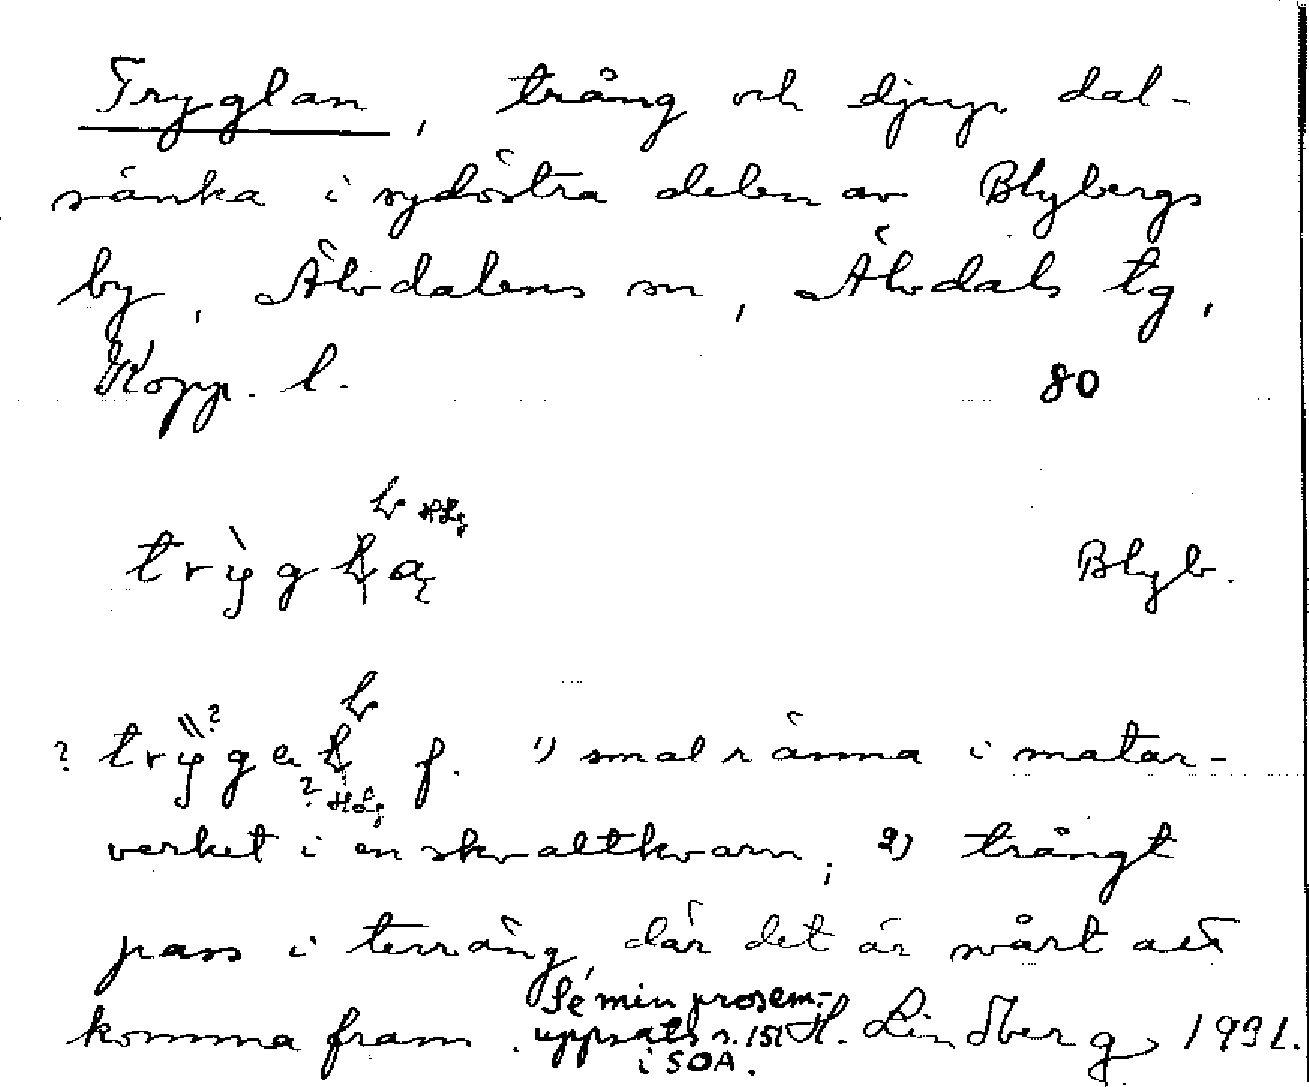 Tryglan, trång och djup dal-
sänka i sydöstra delen av Blybergs
by, Älvdalens sn, Älvdals tg,
Kopp. l. 80
HLg
Blyb.
f. 1) smal ränna i matar-
HLg
verket i en skvaltkvarn, 2) trångt
pass i terräng, där det är svårt att
Se min prosem.-
komma fram. uppsats s. 151 H. Lindberg 1991.
i SOA.